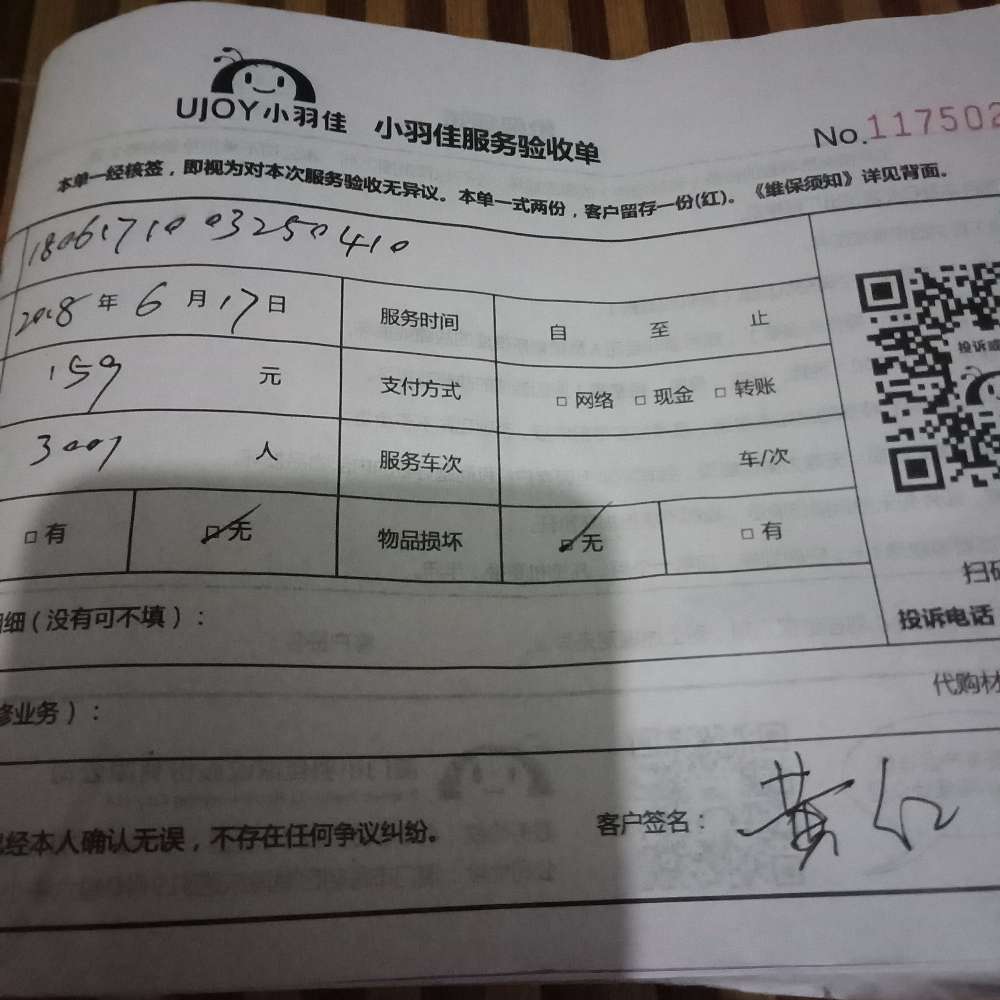 UJOY小羽佳 小羽佳服务验收单 No.117502
本单一经核签，即视为对本次服务验收无异议。本单一式两份，客户留存一份(红)。《维保须知》详见背面。
18061710 03250410
2018年6月17日 服务时间 自 至 止
159 元 支付方式 □网络 □现金 □转账
投诉或
3007 人 服务车次 车/次
□有 □无 物品损坏 □无 □有
扫码
细(没有可不填)： 投诉电话
修业务)： 代购材
经本人确认无误，不存在任何争议纠纷。 客户签名：黄红